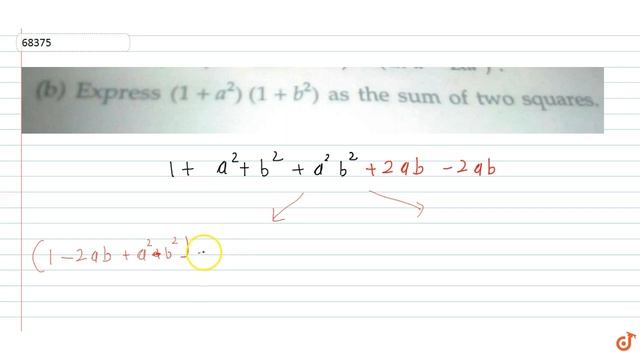 68375
(b) Express (1 + a²) (1 + b²) as the sum of two squares.
1 + a² + b² + a² b² + 2ab - 2ab
(1 - 2ab + a² b²)